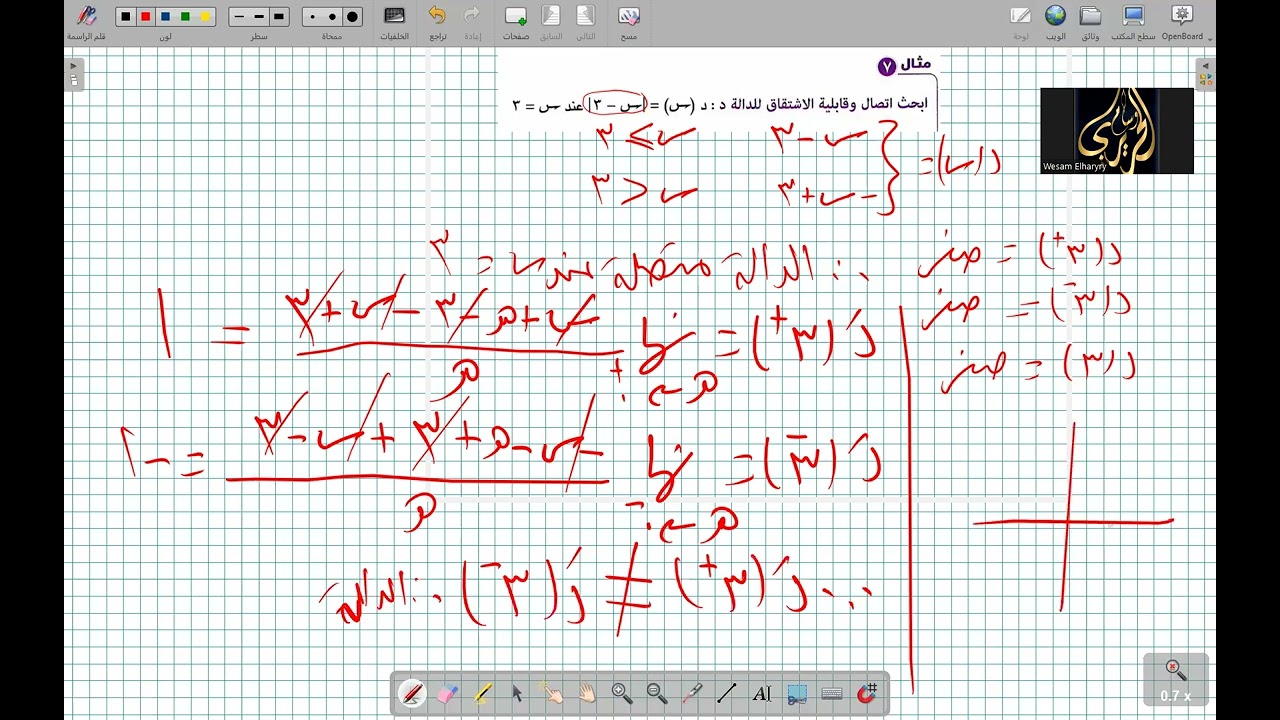 قلم الراسمة
لون
سطر
ممحاة
الخلفيات
تراجع
إعادة
صفحات
السابق
التالي
مسح
لوحة
الويب
وثائق
سطح المكتب
OpenBoard
مثال ٧
ابحث اتصال وقابلية الاشتقاق للدالة د : د (س) = |س - ٣| عند س = ٣
د(س) = { س - ٣ س ≥ ٣
- س + ٣ س < ٣
Wesam Elharyry
د(٣⁺) = صفر
د(٣⁻) = صفر
د(٣) = صفر
∴ الدالة متصلة عند س = ٣
دَ(٣⁺) = نهــا هـ→٠⁺ (س + هـ - ٣ - س + ٣) / هـ = ١
دَ(٣⁻) = نهــا هـ→٠⁻ (- س - هـ + ٣ + س - ٣) / هـ = - ١
∵ دَ(٣⁺) ≠ دَ(٣⁻) ∴ الدالة
0.7 x